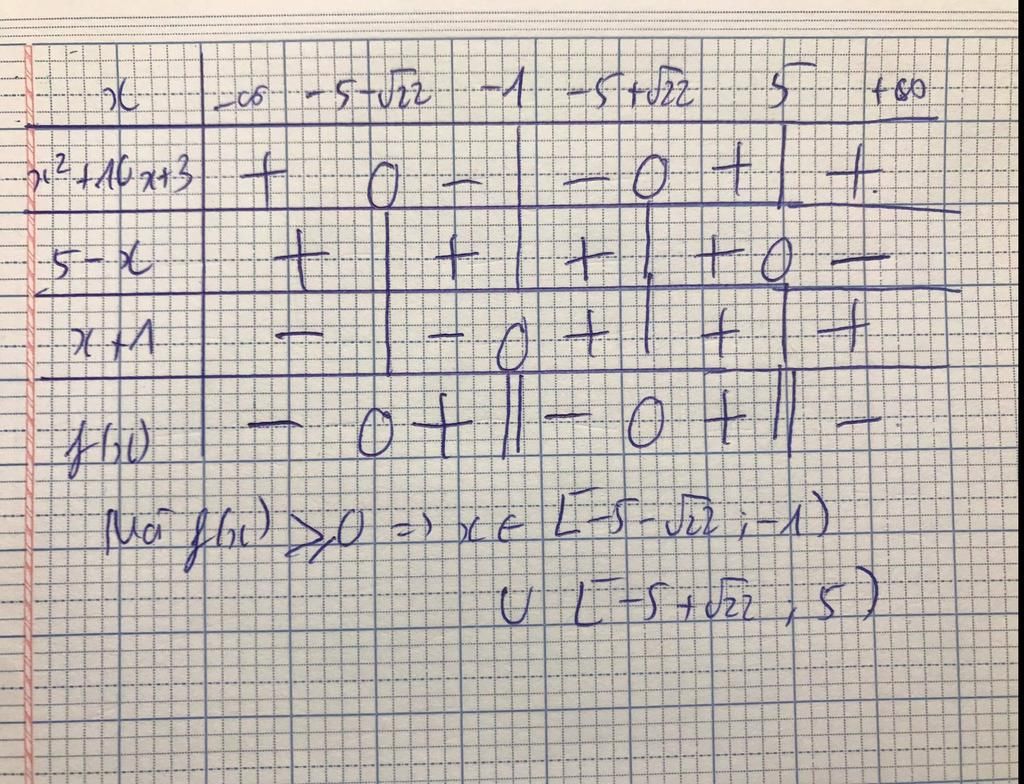 x -∞ -5-√22 -1 -5+√22 5 +∞
x²+10x+3 + 0 - | - 0 + | +
5-x + | + | + | + 0 -
x+1 - | - 0 + | + | +
f(x) - 0 + || - 0 + || -
Mà f(x) ⩾ 0 => x ∈ [-5-√22 ; -1)
∪ [-5+√22 ; 5)